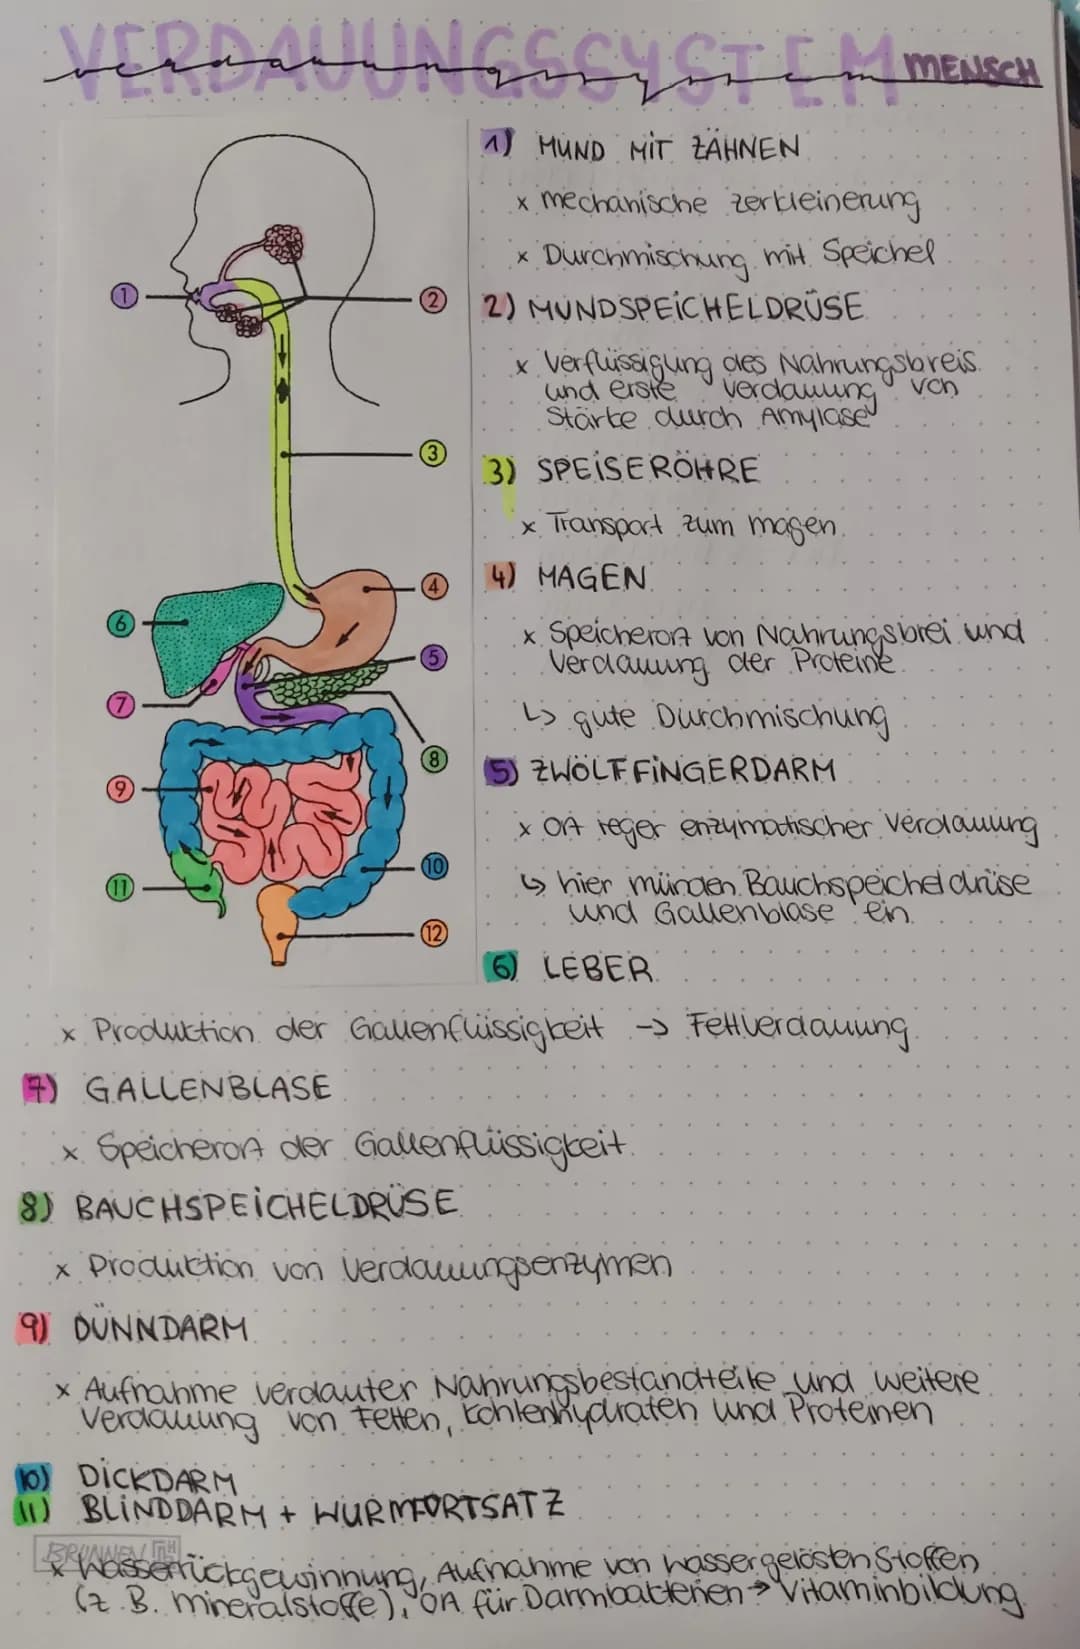 VERDAUUNGSSYSTEM
verdauungssystem MENSCH
1) MUND MIT ZÄHNEN
x mechanische Zerkleinerung
x Durchmischung mit Speichel
2) MUNDSPEICHELDRÜSE
x Verflüssigung des Nahrungsbreis
und erste Verdauung von
Stärke durch Amylase
3) SPEISERÖHRE
x Transport zum Magen
4) MAGEN
x Speicherort von Nahrungsbrei und
Verdauung der Proteine
↳ gute Durchmischung
5) ZWÖLFFINGERDARM
x Ort reger enzymatischer Verdauung
↳ hier münden Bauchspeicheldrüse
und Gallenblase ein
6) LEBER
1
2
3
4
6
5
7
8
9
10
11
12
x Produktion der Gallenflüssigkeit -> Fettverdauung
7) GALLENBLASE
x Speicherort der Gallenflüssigkeit
8) BAUCHSPEICHELDRÜSE
x Produktion von Verdauungsenzymen
9) DÜNNDARM
x Aufnahme verdauter Nahrungsbestandteile und weitere
Verdauung von Fetten, Kohlenhydraten und Proteinen
10) DICKDARM
11) BLINDDARM + WURMFORTSATZ
BRUNNEN
x Wasserrückgewinnung, Aufnahme von wassergelösten Stoffen
(z.B. Mineralstoffe), Ort für Darmbakterien → Vitaminbildung